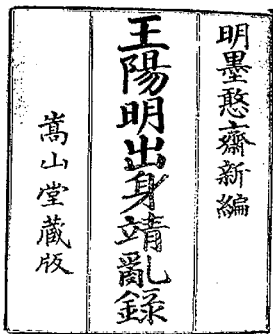 明墨憨齋新編
王陽明出身靖亂録
嵩山堂蔵版